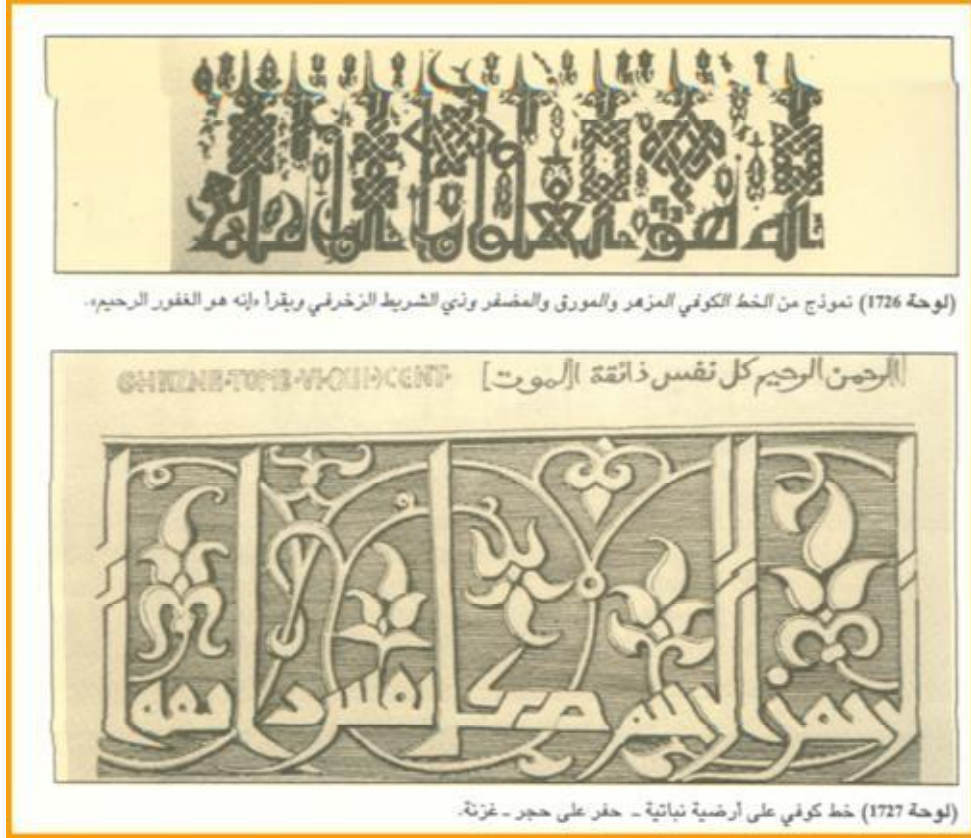 (لوحة 1726) نموذج من الخط الكوفي المزهر والمورق والمضفر وذي الشريط الزخرفي ويقرأ «إنه هو الغفور الرحيم».
GHEZNE·TOMB·VI·CENT· [الرحمن الرحيم كل نفس ذائقة [الموت]
الرحمن الرحيم كل نفس ذائقة
(لوحة 1727) خط كوفي على أرضية نباتية ـ حفر على حجر ـ غزنة.